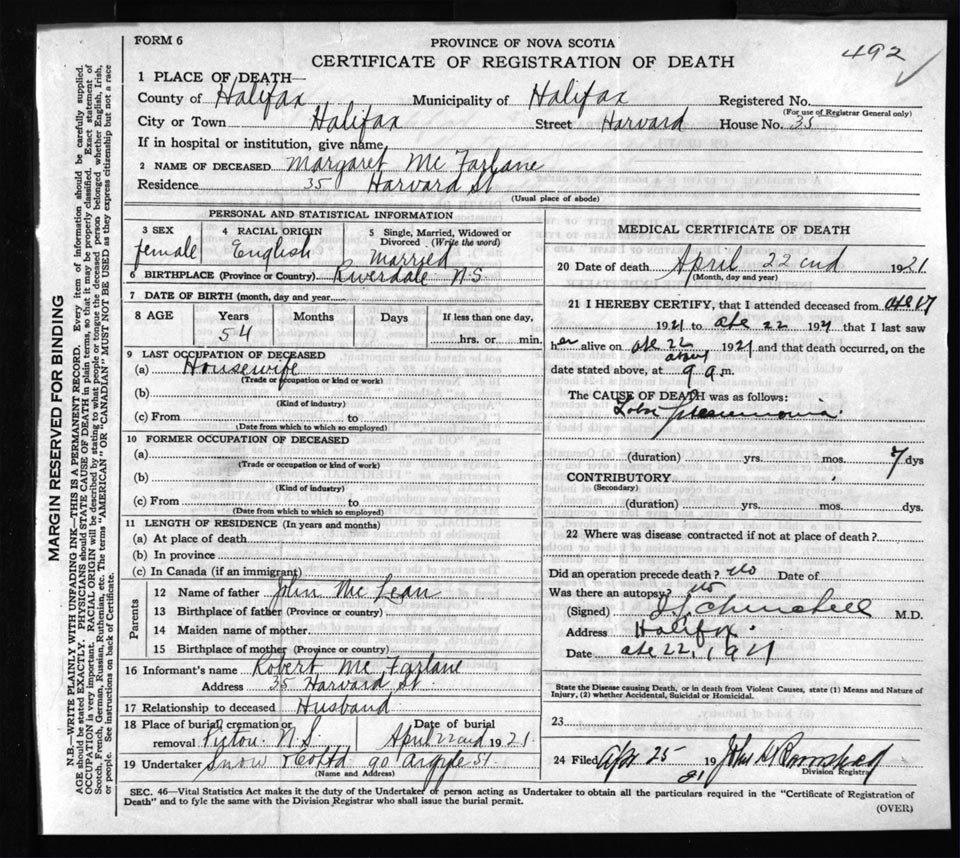 FORM 6
PROVINCE OF NOVA SCOTIA
492
CERTIFICATE OF REGISTRATION OF DEATH
1 PLACE OF DEATH
County of Halifax Municipality of Halifax Registered No.
(For use of Registrar General only)
City or Town Halifax Street Harvard House No. 35
If in hospital or institution, give name
2 NAME OF DECEASED Margaret Mc Farlane
Residence 35 Harvard St
(Usual place of abode)
PERSONAL AND STATISTICAL INFORMATION
3 SEX 4 RACIAL ORIGIN 5 Single, Married, Widowed or Divorced (Write the word)
female English Married
6 BIRTHPLACE (Province or Country) Riverdale N.S
7 DATE OF BIRTH (month, day and year)
8 AGE Years Months Days If less than one day,
54 hrs. or min.
9 LAST OCCUPATION OF DECEASED
(a) Housewife
(Trade or occupation or kind or work)
(b)
(Kind of industry)
(c) From to
(Date from which to which so employed)
10 FORMER OCCUPATION OF DECEASED
(a)
(Trade or occupation or kind of work)
(b)
(Kind of industry)
(c) From to
(Date from which to which so employed)
11 LENGTH OF RESIDENCE (In years and months)
(a) At place of death
(b) In province
(c) In Canada (if an immigrant)
Parents
12 Name of father John Mc Lean
13 Birthplace of father (Province or country)
14 Maiden name of mother
15 Birthplace of mother (Province or country)
16 Informant's name Robert Mc Farlane
Address 35 Harvard St
17 Relationship to deceased Husband
18 Place of burial, cremation or removal Pictou N.S Date of burial April 22nd 1921
19 Undertaker Snow & Co Ltd 90 Argyle St
(Name and Address)
MEDICAL CERTIFICATE OF DEATH
20 Date of death April 22nd 1921
(Month, day and year)
21 I HEREBY CERTIFY, that I attended deceased from 17
1921 to 22 1921 that I last saw
her alive on 22 1921 and that death occurred, on the
date stated above, at about 9 a.m.
The CAUSE OF DEATH was as follows:
Lobar Pneumonia
(duration) yrs. mos. 7 dys
CONTRIBUTORY
(Secondary)
(duration) yrs. mos. dys.
22 Where was disease contracted if not at place of death?
Did an operation precede death? No Date of
Was there an autopsy? No
(Signed) M.D.
Address Halifax
Date 22, 1921
State the Disease causing Death, or in death from Violent Causes, state (1) Means and Nature of
Injury, (2) whether Accidental, Suicidal or Homicidal.
23
24 Filed Apr 25 1921 John
Division Registrar
SEC. 46—Vital Statistics Act makes it the duty of the Undertaker or person acting as Undertaker to obtain all the particulars required in the "Certificate of Registration of
Death" and to fyle the same with the Division Registrar who shall issue the burial permit.
(OVER)
MARGIN RESERVED FOR BINDING
N.B.—WRITE PLAINLY WITH UNFADING INK—THIS IS A PERMANENT RECORD. Every item of information should be carefully supplied.
AGE should be stated EXACTLY. PHYSICIANS should STATE CAUSE OF DEATH in plain terms, so that it may be properly classified. Exact statement of
OCCUPATION is very important. RACIAL ORIGIN will be described by stating to what people or tongue the deceased person belonged whether English, Irish,
Scotch, French, German, Russian, Ruthenian, etc. The terms "AMERICAN" OR "CANADIAN" MUST NOT BE USED as they express citizenship but not a race
or people. See instructions on back of Certificate.